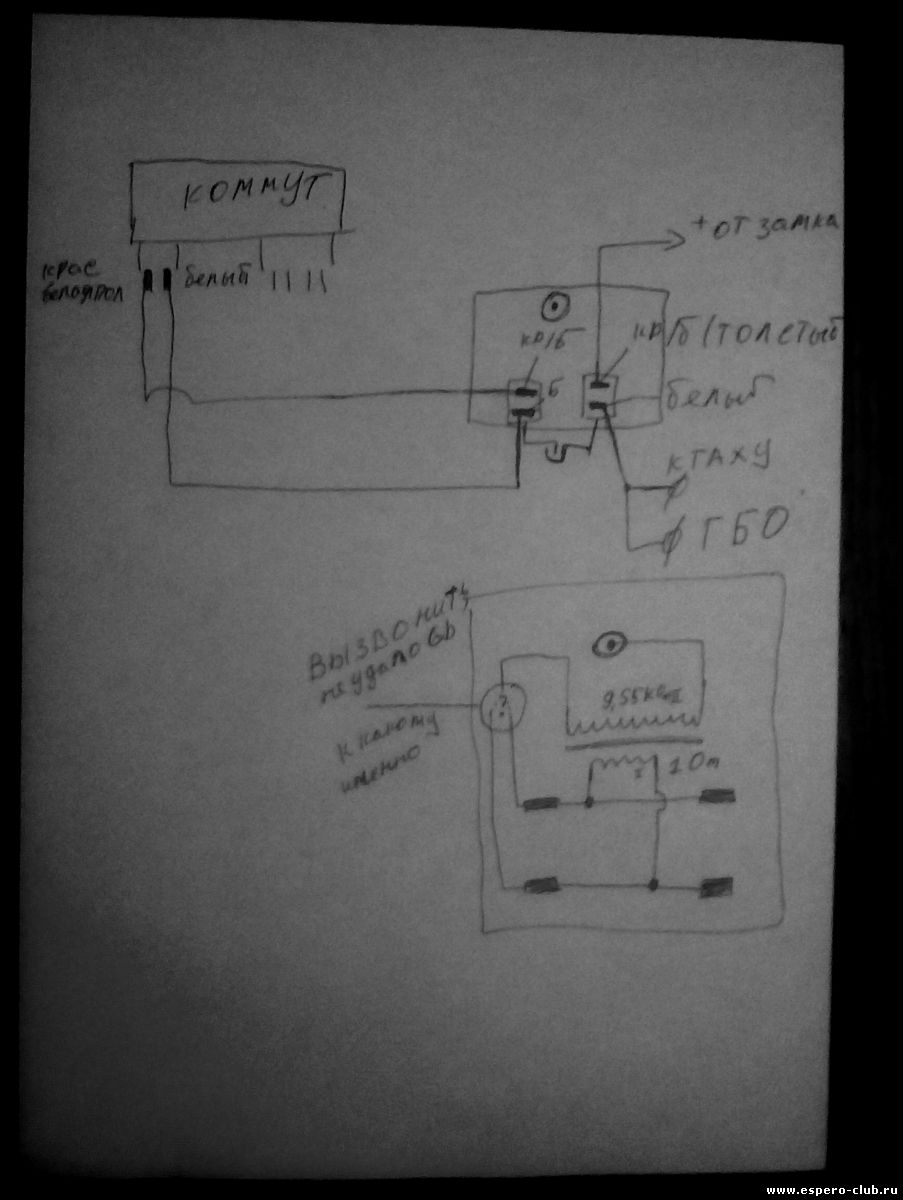 КОММУТ
крас
белый
+ от замка
кр/б
кр/б/толстый
Б
белый
к таху
ГБО
Вызвонить
не удалось
к какому
именно
?
9,55 кОм II
I 1 Ом
www.espero-club.ru